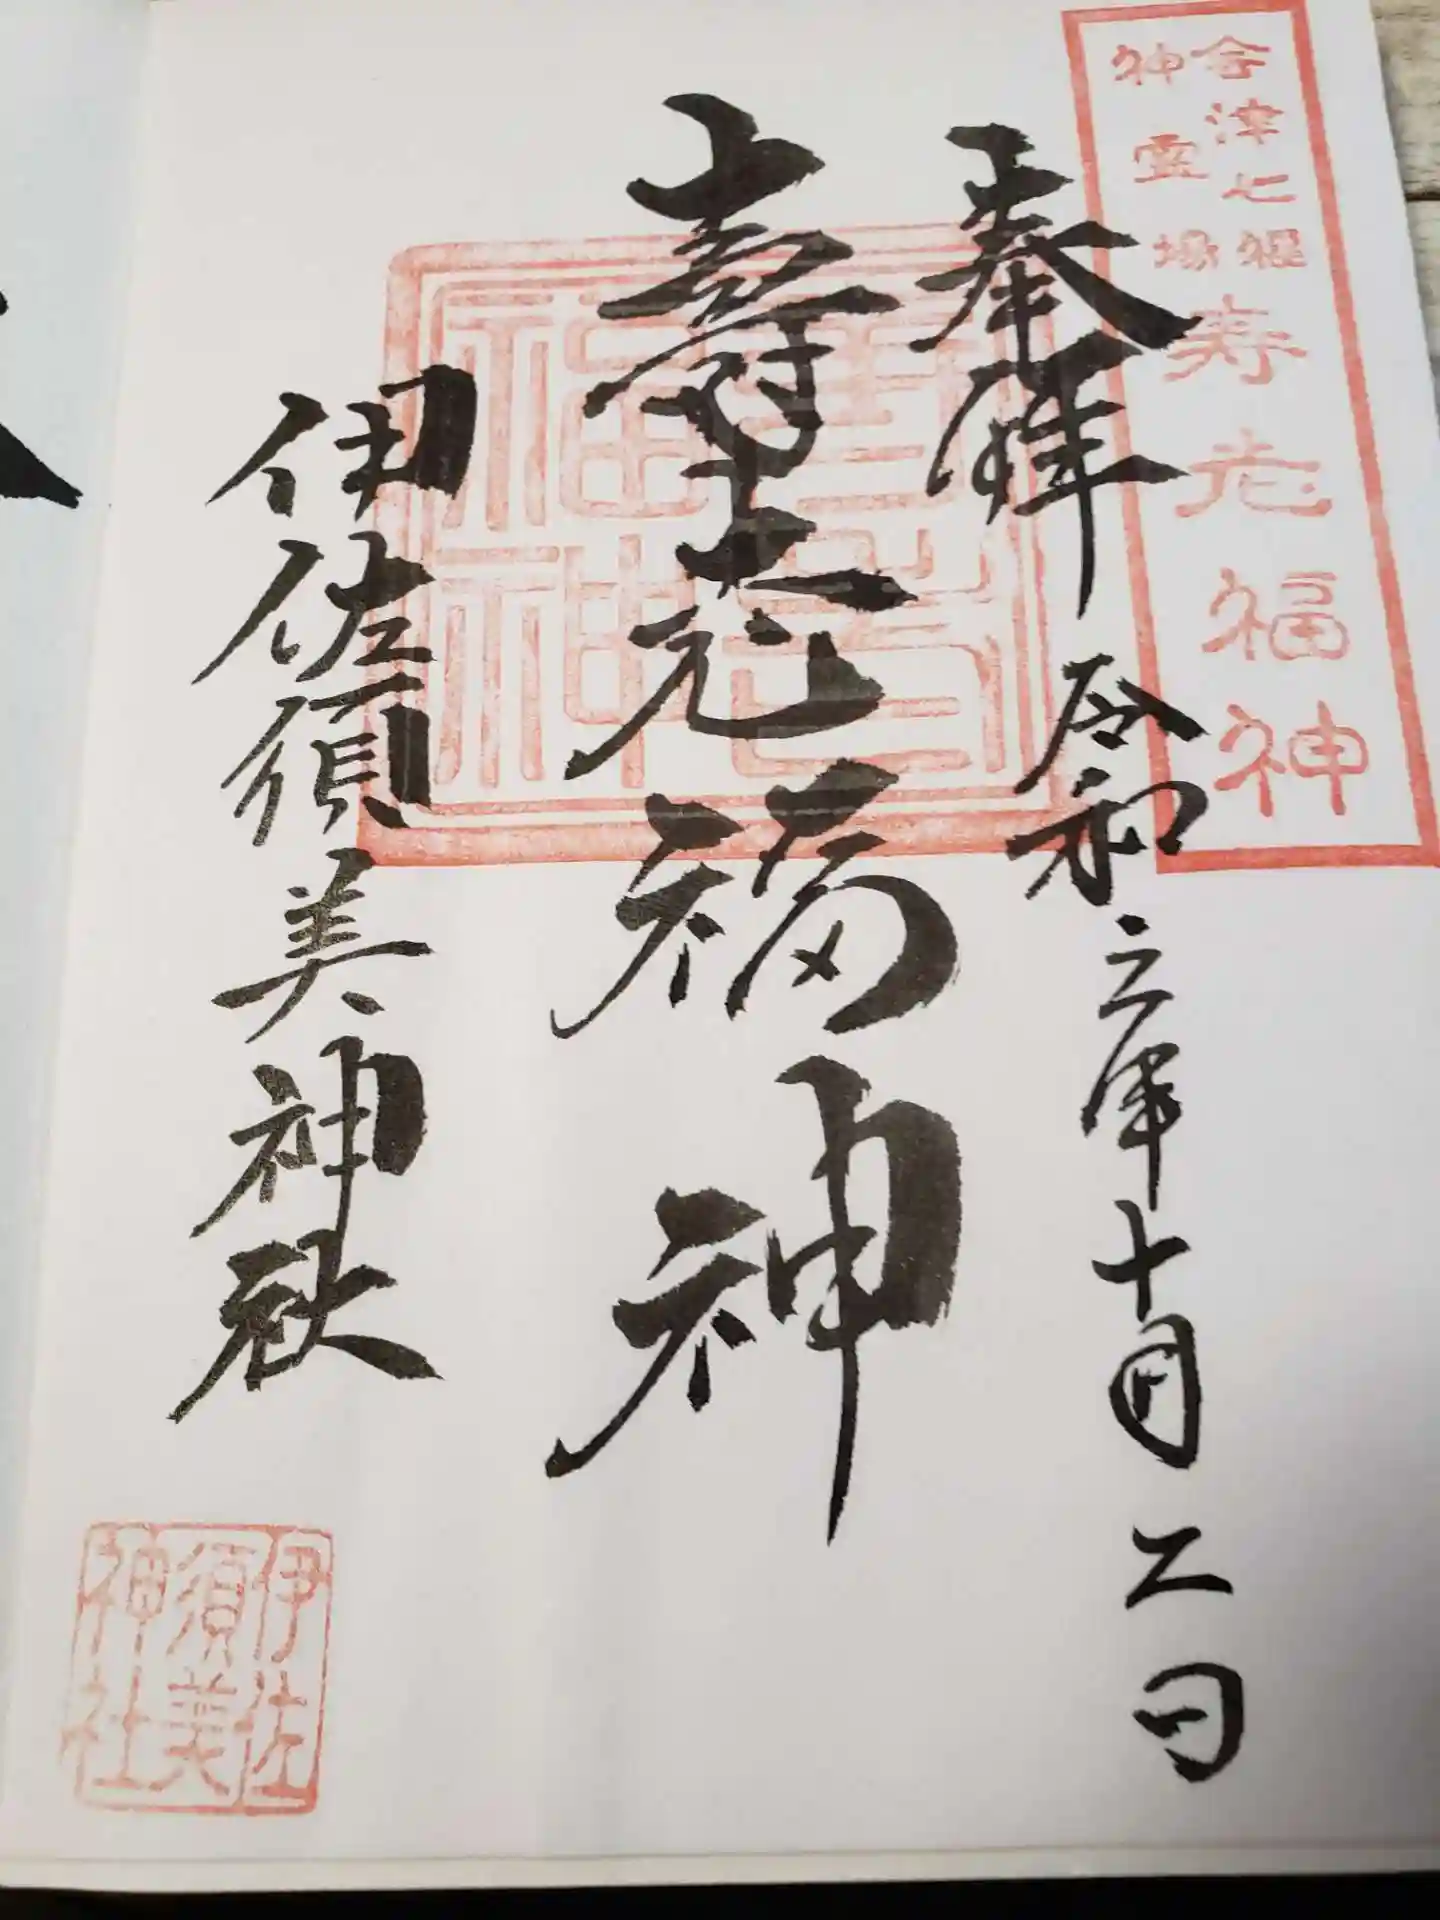 会津七福
神霊場
寿老福神
奉拝 令和三年十月二日
壽老福神
壽老
福神
伊佐須美神社
伊佐
須美
神社